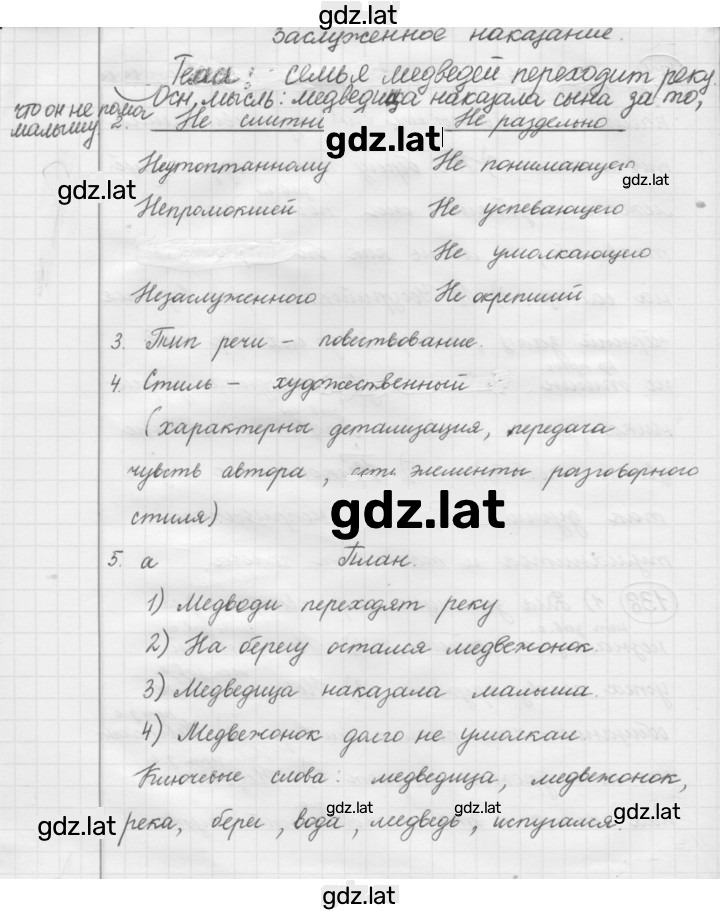 gdz.lat
заслуженное наказание.
Тема: семья медведей переходит реку.
Осн. мысль: медведица наказала сына за то,
что он не помог
малышу.
2. Не слитно Не раздельно
gdz.lat
Неутоптанному Не понимающего
gdz.lat
Непромокшей Не успевающего
Не умолкающего
Незаслуженного Не окрепший
3. Тип речи – повествование.
4. Стиль – художественный
(характерны детализация, передача
чувств автора, есть элементы разговорного
стиля)
gdz.lat
5. а План.
1) Медводи переходят реку
2) На берегу остался медвежонок.
3) Медведица наказала малыша.
4) Медвежонок долго не умолкал
Ключевые слова: медведица, медвежонок,
gdz.lat река, берег, вода, медведь, испугался.
gdz.lat
gdz.lat
gdz.lat
gdz.lat